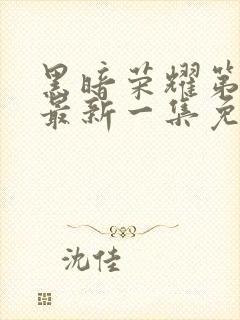 黑暗荣耀第
最新一集免
沈佳